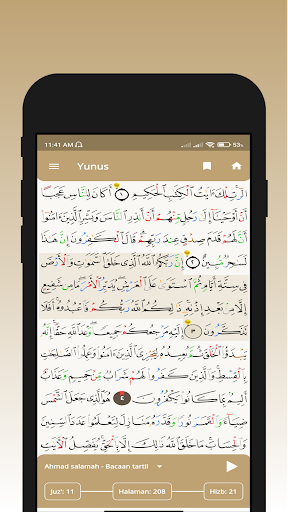 11:41 AM
53%
Yunus
الٓر ۚ تِلْكَ ءَايَٰتُ ٱلْكِتَٰبِ ٱلْحَكِيمِ ١ أَكَانَ لِلنَّاسِ عَجَبًا
أَنْ أَوْحَيْنَآ إِلَىٰ رَجُلٍ مِّنْهُمْ أَنْ أَنذِرِ ٱلنَّاسَ وَبَشِّرِ ٱلَّذِينَ ءَامَنُوٓا۟
أَنَّ لَهُمْ قَدَمَ صِدْقٍ عِندَ رَبِّهِمْ ۗ قَالَ ٱلْكَٰفِرُونَ إِنَّ هَٰذَا
لَسَٰحِرٌ مُّبِينٌ ٢ إِنَّ رَبَّكُمُ ٱللَّهُ ٱلَّذِى خَلَقَ ٱلسَّمَٰوَٰتِ وَٱلْأَرْضَ
فِى سِتَّةِ أَيَّامٍ ثُمَّ ٱسْتَوَىٰ عَلَى ٱلْعَرْشِ ۖ يُدَبِّرُ ٱلْأَمْرَ ۖ مَا مِن شَفِيعٍ
إِلَّا مِنۢ بَعْدِ إِذْنِهِۦ ۚ ذَٰلِكُمُ ٱللَّهُ رَبُّكُمْ فَٱعْبُدُوهُ ۚ أَفَلَا
تَذَكَّرُونَ ٣ إِلَيْهِ مَرْجِعُكُمْ جَمِيعًا ۖ وَعْدَ ٱللَّهِ حَقًّا ۚ إِنَّهُۥ
يَبْدَؤُا۟ ٱلْخَلْقَ ثُمَّ يُعِيدُهُۥ لِيَجْزِىَ ٱلَّذِينَ ءَامَنُوا۟ وَعَمِلُوا۟ ٱلصَّٰلِحَٰتِ
بِٱلْقِسْطِ ۚ وَٱلَّذِينَ كَفَرُوا۟ لَهُمْ شَرَابٌ مِّنْ حَمِيمٍ وَعَذَابٌ
أَلِيمٌۢ بِمَا كَانُوا۟ يَكْفُرُونَ ٤ هُوَ ٱلَّذِى جَعَلَ ٱلشَّمْسَ
ضِيَآءً وَٱلْقَمَرَ نُورًا وَقَدَّرَهُۥ مَنَازِلَ لِتَعْلَمُوا۟ عَدَدَ ٱلسِّنِينَ
وَٱلْحِسَابَ ۚ مَا خَلَقَ ٱللَّهُ ذَٰلِكَ إِلَّا بِٱلْحَقِّ ۚ يُفَصِّلُ ٱلْءَايَٰتِ
Ahmad salamah - Bacaan tartil
Juz': 11
Halaman: 208
Hizb: 21